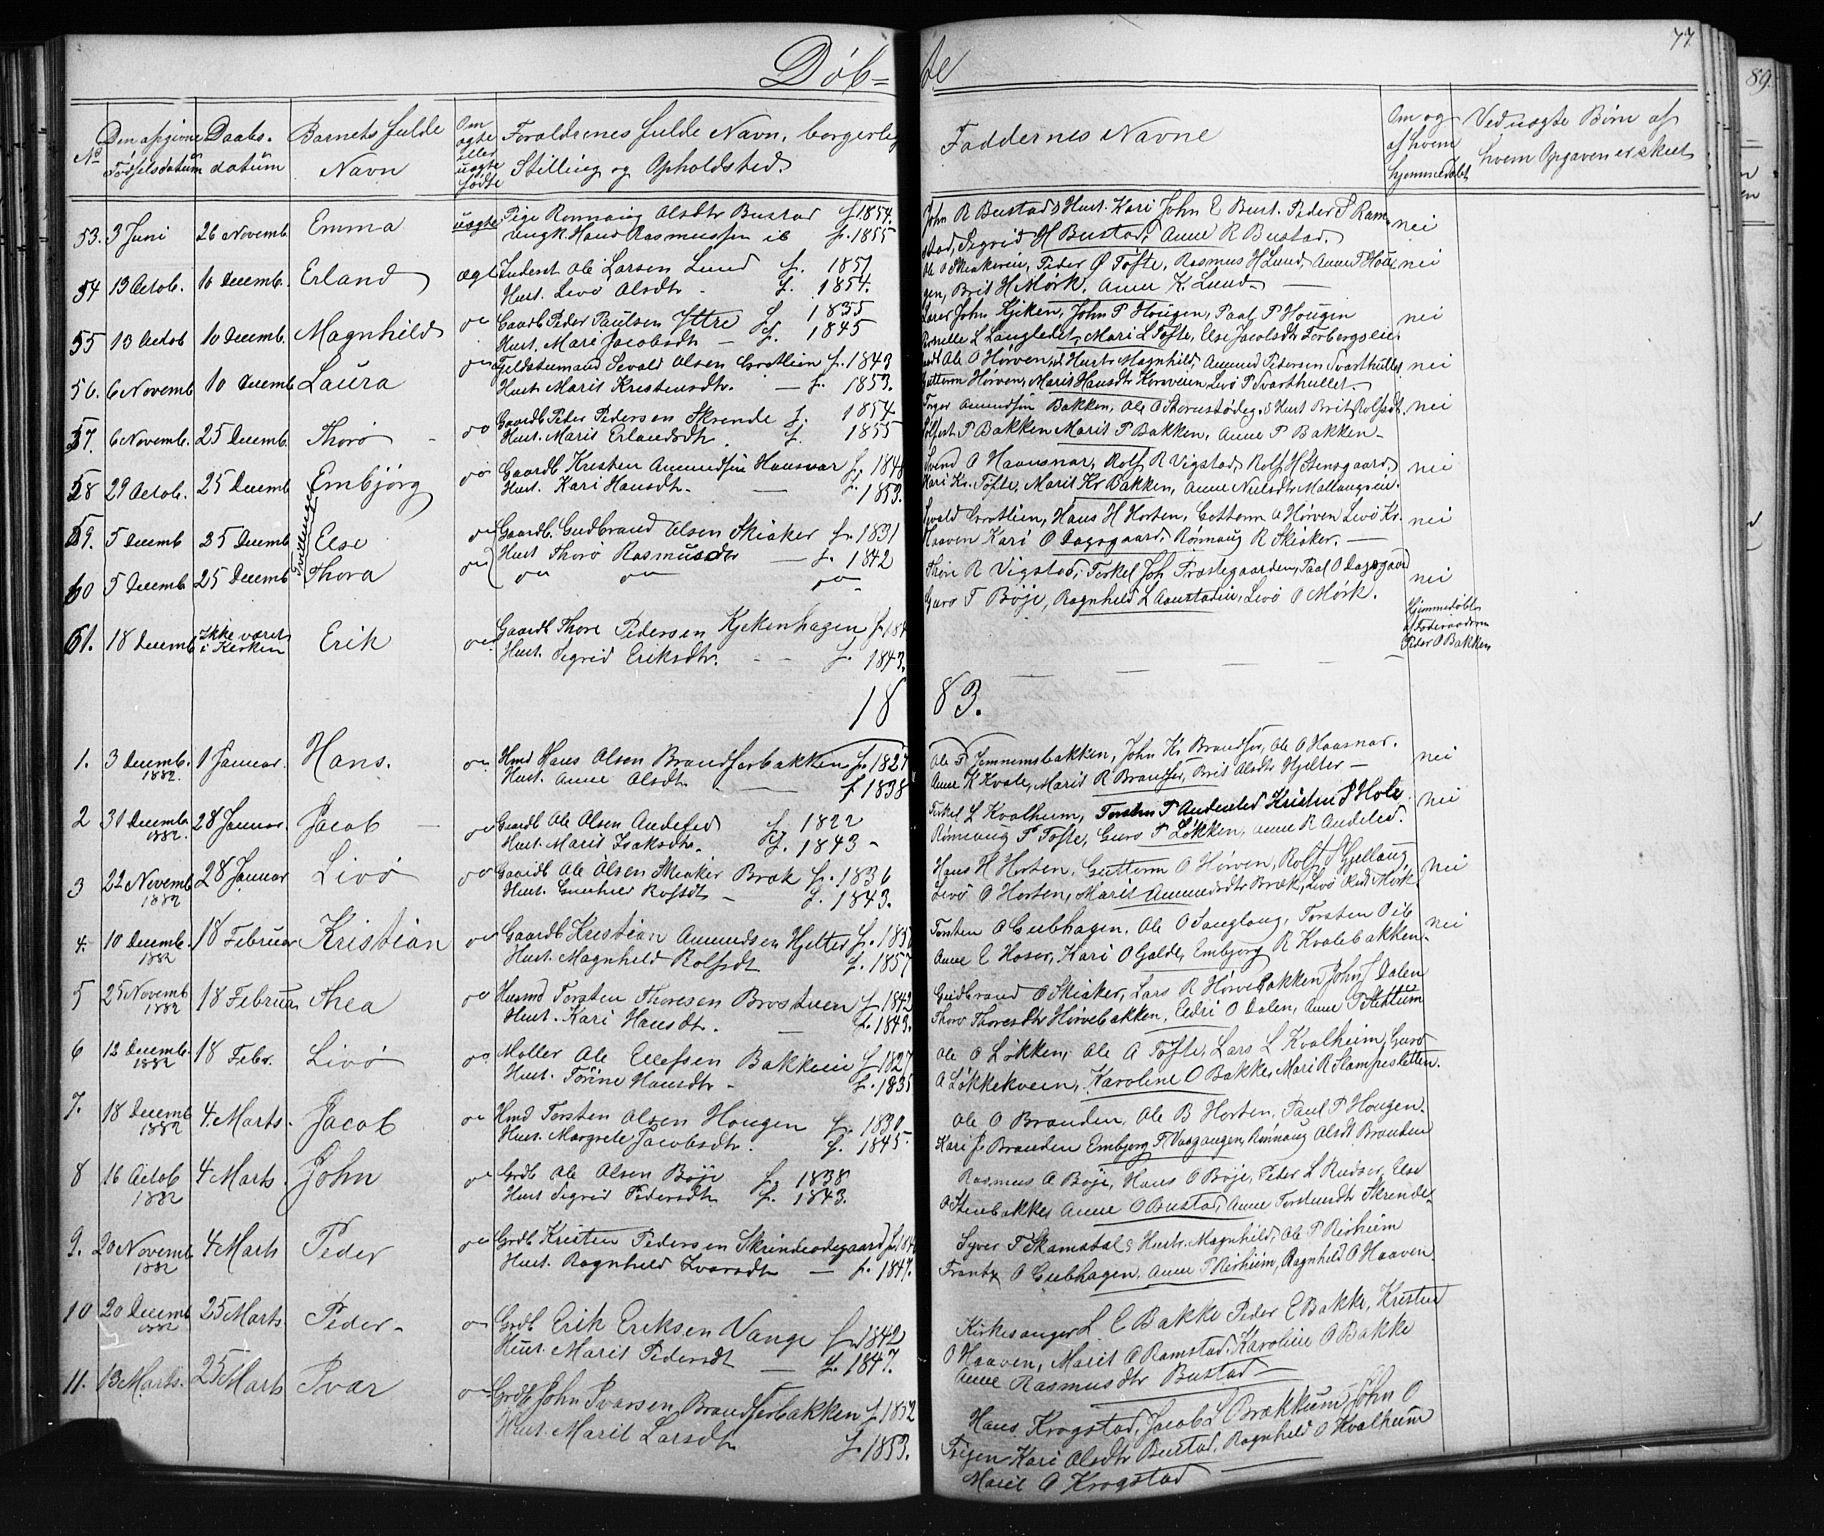 77
89.
Døbte
No
Den afgivne Fødselsdatum
Daabsdatum
Barnets fulde Navn
Om ægte eller uægte fødte
Forældrenes fulde Navn, borgerlig Stilling og Opholdsted.
Faddernes Navne
Om og af hvem hjemmedøbt
Ved uægte Børn af hvem Opgaven er skeet
53. 3 Juni 26 Novemb. Emma uægte Pige Rønnaug Olsdtr Bustad f. 1854.
Ungk. Hans Rasmussen ib f. 1855
John R Bustad & Hust. Kari John E Bust. Peder P Ram-
stad, Sigrid H Bustad, Anne R Bustad. nei
54 13 Octob. 10 Decemb. Erland ægt Inderst Ole Larsen Lund f. 1851
Hust. Livø Olsdtr - f. 1854.
Ole O Skiakereie, Peder Ø Tofte, Rasmus H Lund, Anne T Hou-
gen, Brit H Mørk, Anne K Lund. nei
55 13 Octob 10 Decemb. Magnhild Gaardb Peder Paulsen Yttre f 1835
Hust. Mari Jacobsdtr - f. 1845
Lærer John Kjeken, John P Hougen, Paal P Hougen nei
Pernille L Langledet, Mari L Tofte, Else Jacobsdtr Forbergseie
56. 6 Novemb 10 Decemb Laura Feldtømand Sevald Olsen Grotlien f. 1843
Hust Marit Kristensdtr. - f. 1853.
Ole O Hørven, & Hustr Magnhild, Amund Pedersen Svarthullet, nei
Guttorm Hørven, Marit Hansdtr Korsveien Livø P Svarthullet.
57. 6 Novemb. 25 Decemb. Thorø Gaardb Peter Pedersen Skrende f. 1854
Hust. Marit Erlandsdtr. f. 1855
Inger Amundsen Bakken, Ole O Storustødeg. & Hust Brit Rolfsdtr nei
P Bakken Marit P Bakken, Anne P Bakken
58 29 Octob. 25 Decemb Embjørg Gaardb Kristen Amundsen Haansnar f. 184
Hust. Kari Hansdtr. - f. 1853.
Svend O Haansnar, Rolf R Vigstad, Rolf H Stensgaard, nei
Kari Kr. Tofte, Marit Kr Bakken, Anne Nielsdtr Mallaugseie.
Tvillinger
59. 5 Decemb 25 Decemb Else Gaardb. Gudbrand Olsen Skiaker f. 1831
Hust Thoro Rasmusdtr - f. 1842
Sevald Grotlien, Hans H Horten, Guttorm O Hørven Livø Kr. nei
Haaven Kari O Dagsgaard, Rønnaug R Skiaker. -
60 5 Decemb 25 Decemb Thora
Thore R Vigstad, Torkel Joh Præstegaarden, Paal O Dagsgaard nei
Guro T Bøje, Ragnhild L Aanstadeie, Livø O Mørk.
61. 18 Decemb Ikke været i Kirken Erik Gaardb Thore Pedersen Kjekenhagen f 184
Hust. Sigrid Eriksdtr. - - f. 1843.
Hjemmedøbt af Føderaadsm Peder O Bakken
1883.
1. 3 Decemb. 1882. 1 Januar. Hans. Hmd Hans Olsen Brandsarbakken f. 1827
Hust. Anne Olsdtr - f 1838
Ole P Jemmemsbakken, John Kr Brandsar, Ole O Haasnar. nei
Anne K Kvale, Marit R Brandsar, Brit Olsdtr Hjelter -
2 31 Decemb. 1882. 28 Januar. Jacob - Gaardb Ole Olsen Andeled f. 1822
Hust. Marit Isaksdtr. f. 1843 -
Torkel L Kvalheim, Torsten P Andeled Kristen P Hole. nei
Rønnaug P Tofte, Guro P Løkken, Anne R Andeled.
3 22 Novemb 1882 28 Januar Livø Gaardb Ole Olsen Skiaker Bræk f. 1836
Hust. Gunhild Rolfsdtr - f. 1843.
Hans H Horten, Guttorm O Hørven, Rolf J Gjellaug, nei
Livø O Horten, Marit Amundsdtr Bræk, Livø Mørk
4. 10 Decemb. 1882 18 Februar Kristian Gaardb Kristian Amundsen Hjelter f. 183
Hust. Magnhild Rolfsdtr f. 1857
Torsten O Gubhagen, Ole O Sanglaug, Torsten O ib nei
Anne E Hoser, Kari O Galde, Embjørg R Kvalebakken.
5 25 Novemb 1882 18 Februar Thea Husmd Torsten Thoresen Brostuen f 1842
Hust. Kari Hansdtr. - f. 1843.
Gudbrand O Skiaker, Lars R Hørvebakken, John J Dalen
Thoro Thoresdtr Hørvebakken, Eldri O Dalen, Anne P
6 12 Decemb. 1882 18 Febr. Livø Møller Ole Ellefsen Bakkeeie f 1827
Hust. Torine Hansdtr - f. 1835
Ole O Løkken, Ole A Tofte, Lars L Kvalheim, Guro
A Løkkekveen, Karoline O Bakke, Mari R Stampesletten.
7. 18 Decemb 1882 4. Marts. Jacob Hmd Torsten Olsen Hougen f. 1830.
Hust. Margrete Jacobsdtr. f. 1845.
Ole O Branden, Ole B Horten, Paul P Hougen.
Kari J Branden Embjørg T Vaagaugen, Rønnaug Olsdt Branden
8 16 Octob 1882 4 Marts. John Grdb Ole Olsen Bøje f. 1838
Hust Sigrid Pedersdtr f. 1843.
Rasmus O Bøje, Hans O Bøje, Peder L Rudser, Else
O Stenbakke, Anne O Bustad, Anne Torstensdtr Skrende.
9. 20 Novemb 1882 4 Marts Peder Grdb Kristen Pedersen Skrindeodegaard f. 184
Hust. Ragnhild Ivarsdtr - f. 1847.
Syver T Skamsdal & Hustr. Magnhild, Ole P Rirhiem
Frantz O Gubhagen, Anne P Rirhiem, Ragnhild O Haaven.
10 20 Decemb 1882 25 Marts Peder - Grdb Erik Eriksen Vange f 1842
Hust. Marit Pedersdtr - f. 1847.
Kirkesanger L. E Bakke Peder E Bakke, Kristen
O Haaven, Marit O Ramstad, Karoline O Bakke
Anne Rasmusdtr Bustad -
11. 13 Marts. 25 Marts Ivar Grdb John Ivarsen Brandsarbakken f 1852
Hust. Marit Larsdtr f. 1853.
Hans Krogstad, Jacob L Brækkum, John O
Kari Olsdtr Bustad, Ragnhild O Kvalheim
Marit O Krogstad